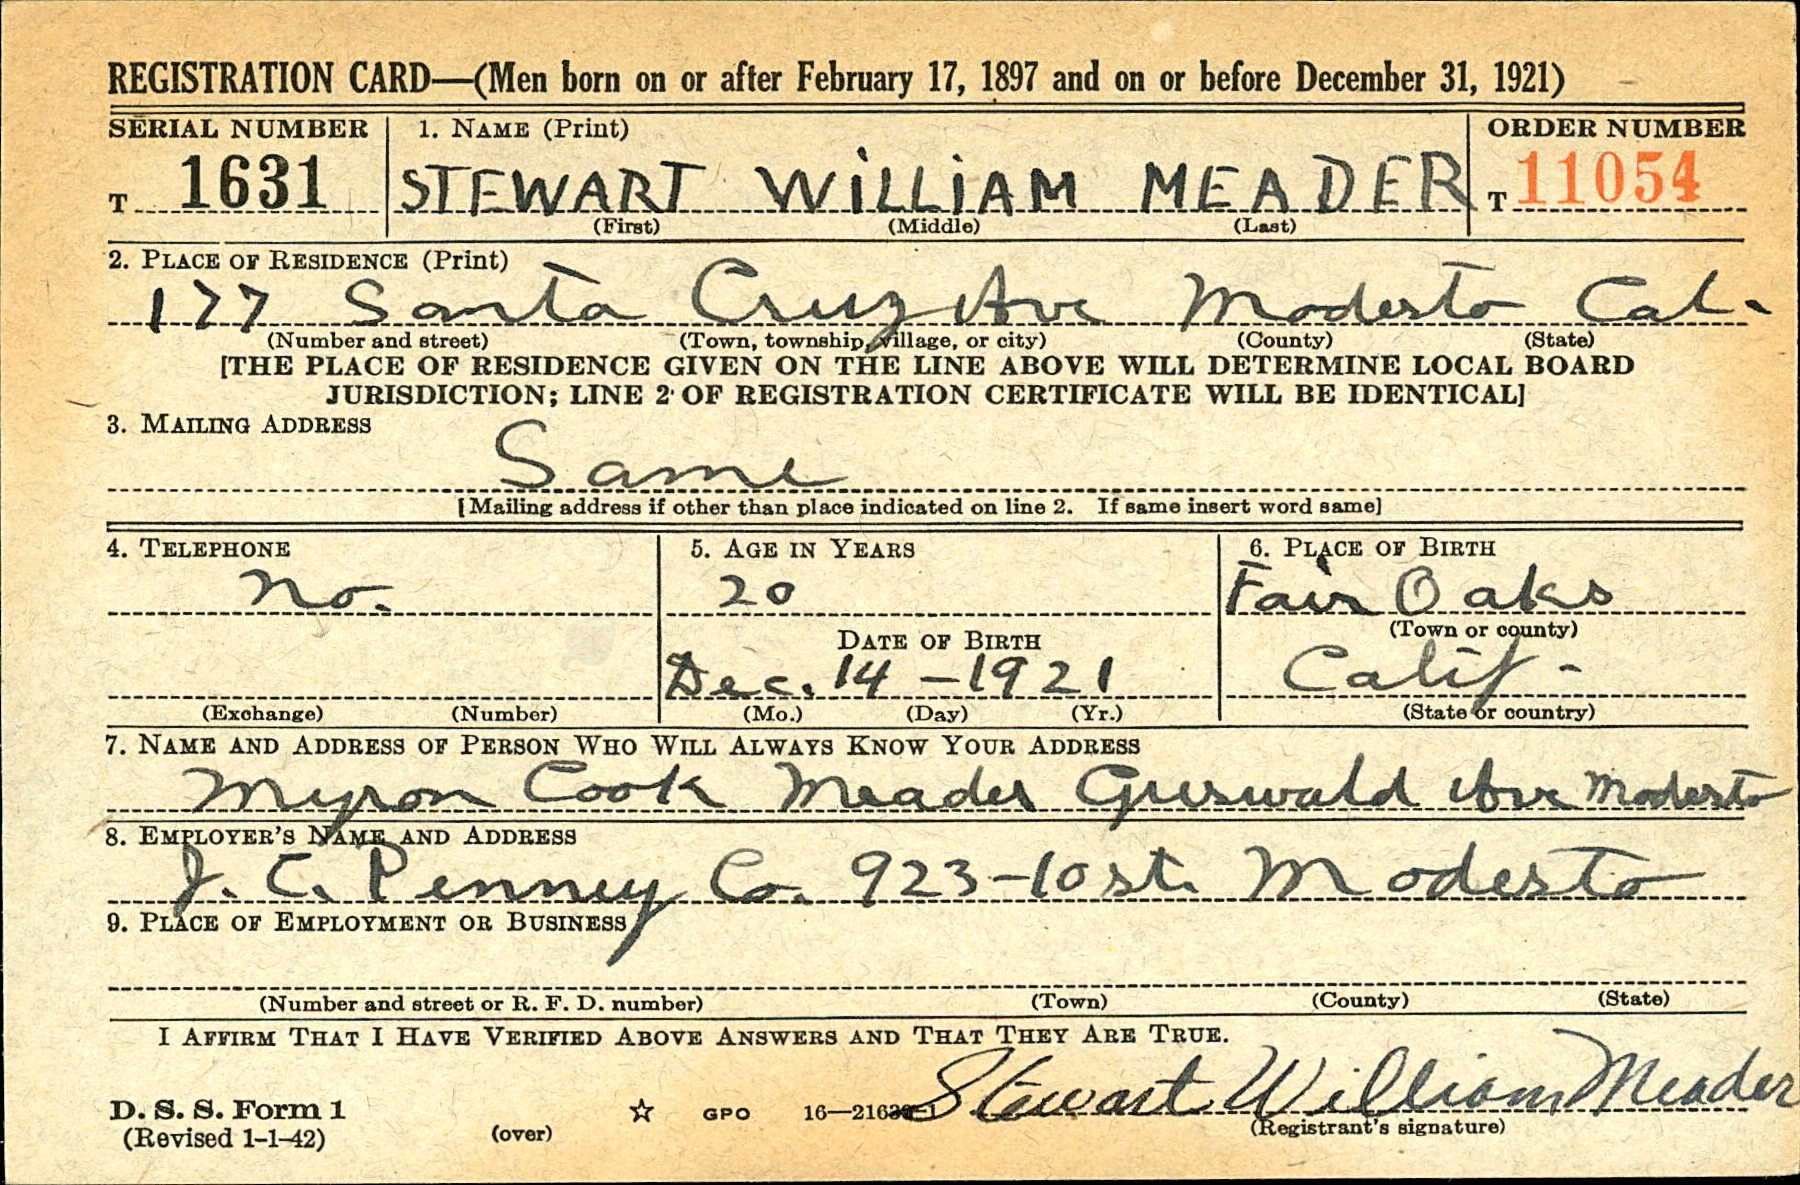 REGISTRATION CARD—(Men born on or after February 17, 1897 and on or before December 31, 1921)
SERIAL NUMBER 1. NAME (Print) ORDER NUMBER
T 1631 STEWART WILLIAM MEADER T 11054
(First) (Middle) (Last)
2. PLACE OF RESIDENCE (Print)
177 Santa Cruz Ave Modesto Cal.
(Number and street) (Town, township, village, or city) (County) (State)
[THE PLACE OF RESIDENCE GIVEN ON THE LINE ABOVE WILL DETERMINE LOCAL BOARD
JURISDICTION; LINE 2 OF REGISTRATION CERTIFICATE WILL BE IDENTICAL]
3. MAILING ADDRESS
Same
[Mailing address if other than place indicated on line 2. If same insert word same]
4. TELEPHONE 5. AGE IN YEARS 6. PLACE OF BIRTH
no. 20 Fair Oaks
(Town or county)
DATE OF BIRTH
Dec. 14 - 1921 Calif -
(Exchange) (Number) (Mo.) (Day) (Yr.) (State or country)
7. NAME AND ADDRESS OF PERSON WHO WILL ALWAYS KNOW YOUR ADDRESS
Myron Cook Meader Griswald Ave Modesto
8. EMPLOYER'S NAME AND ADDRESS
J. C. Penney Co. 923-10 st. Modesto
9. PLACE OF EMPLOYMENT OR BUSINESS
(Number and street or R. F. D. number) (Town) (County) (State)
I AFFIRM THAT I HAVE VERIFIED ABOVE ANSWERS AND THAT THEY ARE TRUE.
Stewart William Meader
D. S. S. Form 1 ☆ GPO
(Revised 1-1-42) (over) (Registrant's signature)